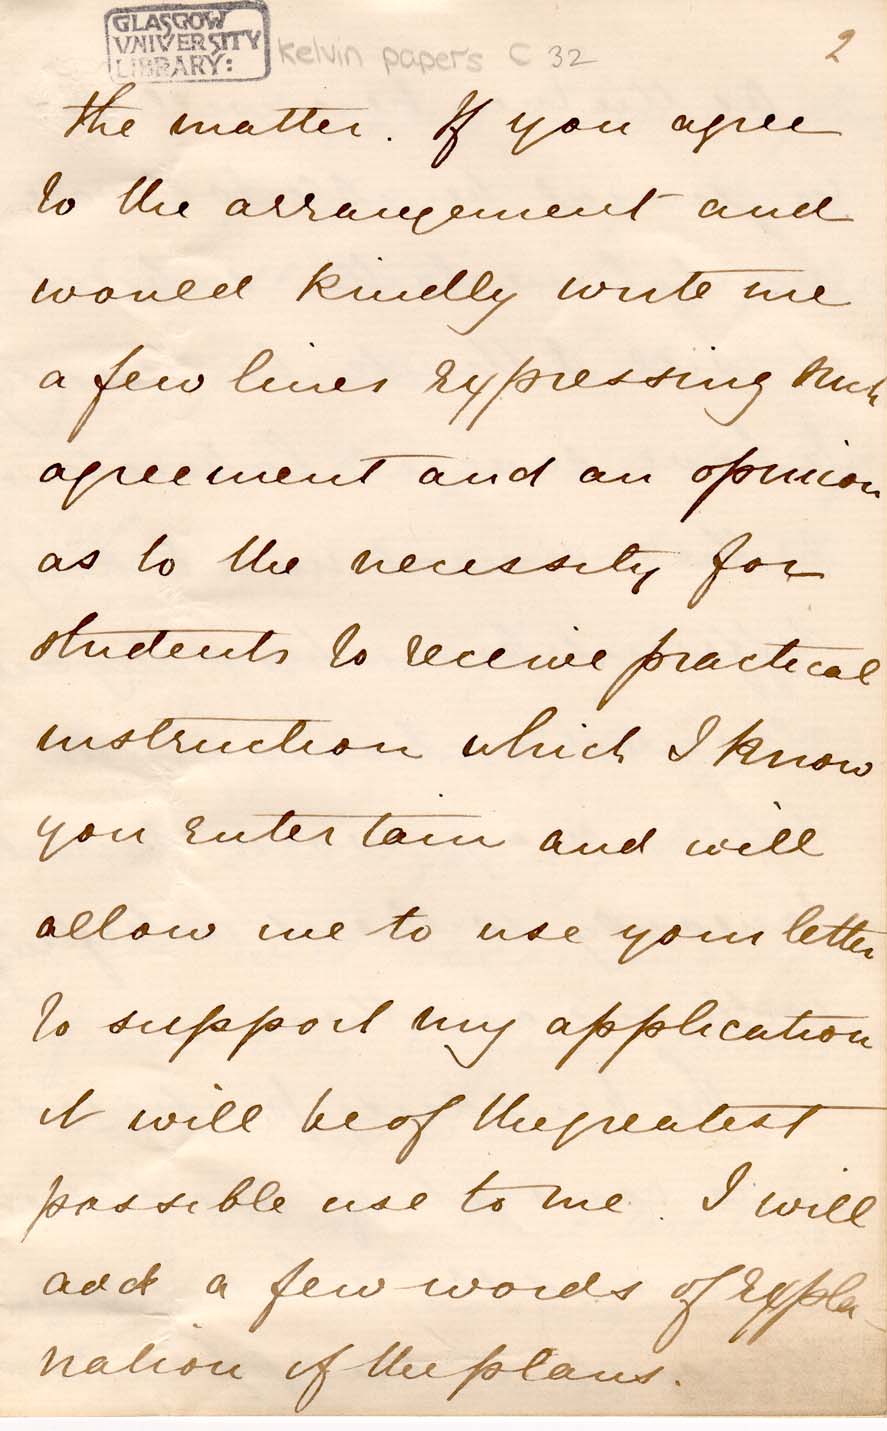 GLASGOW
UNIVERSITY
LIBRARY:
Kelvin papers C 32
2
the matter. If you agree
to the arrangement and
would kindly write me
a few lines expressing such
agreement and an opinion
as to the necessity for
students to receive practical
instruction which I know
you entertain and will
allow me to use your letter
to support my application
it will be of the greatest
possible use to me. I will
add a few words of expla-
nation of the plans.